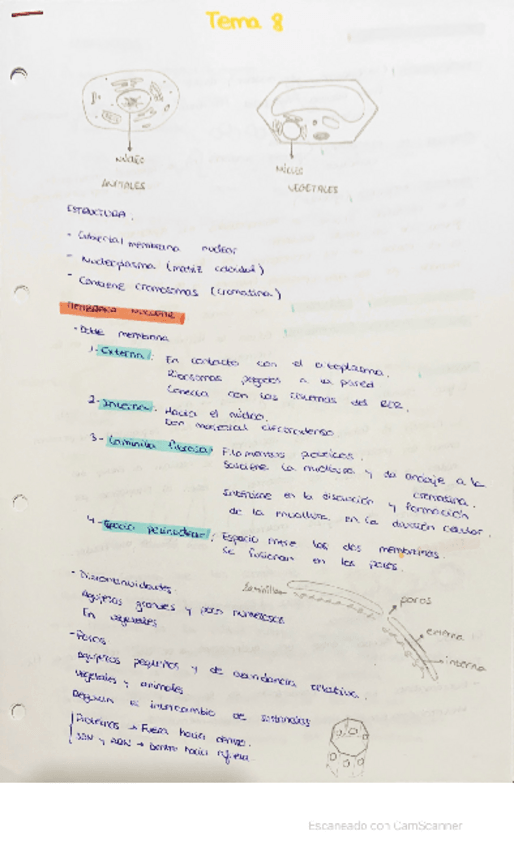 Tema 8
núcleo
ANIMALES
núcleo
VEGETALES
ESTRUCTURA.
- Cubierta/membrana nuclear
- Nucleoplasma (matriz coloidal)
- Contiene cromosomas (cromatina)
MEMBRANA NUCLEAR
- Doble membrana
1- Externa: En contacto con el citoplasma.
Ribosomas pegados a la pared
Conecta con las cisternas del RER.
2- Interna: Hacia el núcleo.
Con material electrodenso.
3- Laminilla fibrosa: Filamentos proteicos.
Sostiene la nuclear y da anclaje a la
cromatina.
Interviene en la disolución y formación
de la envoltura en la división celular.
4- Espacio perinuclear: Espacio entre las dos membranas.
Se fusionan en los poros.
- Discontinuidades.
Agujeros grandes y poco numerosos
En vegetales
laminilla
poros
externa
interna
- Poros
Agujeros pequeños y de abundancia relativa.
Vegetales y animales
Regulan el intercambio de sustancias
Proteínas → Fuera hacia dentro.
y ARN → Dentro hacia fuera.
Escaneado con CamScanner